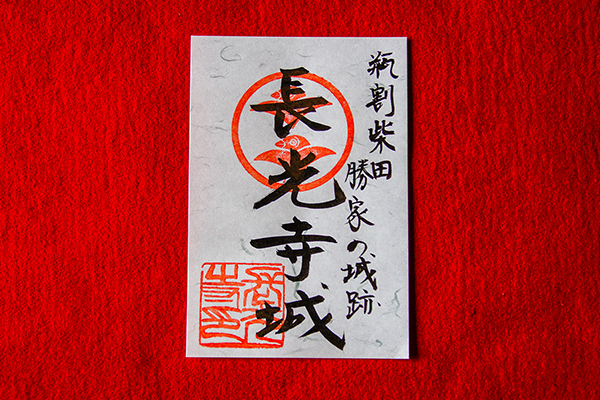 瓶割柴田
勝家の城跡
長光寺城